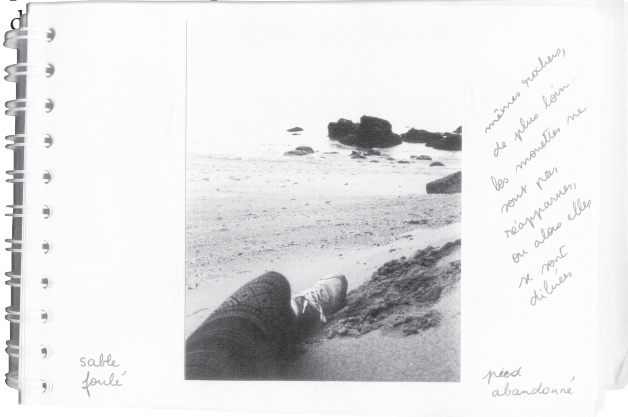 mêmes rochers,
de plus loin.
les mouettes ne
sont pas
réapparues,
ou alors elles
se sont
diluées
sable
foulé
pied
abandonné